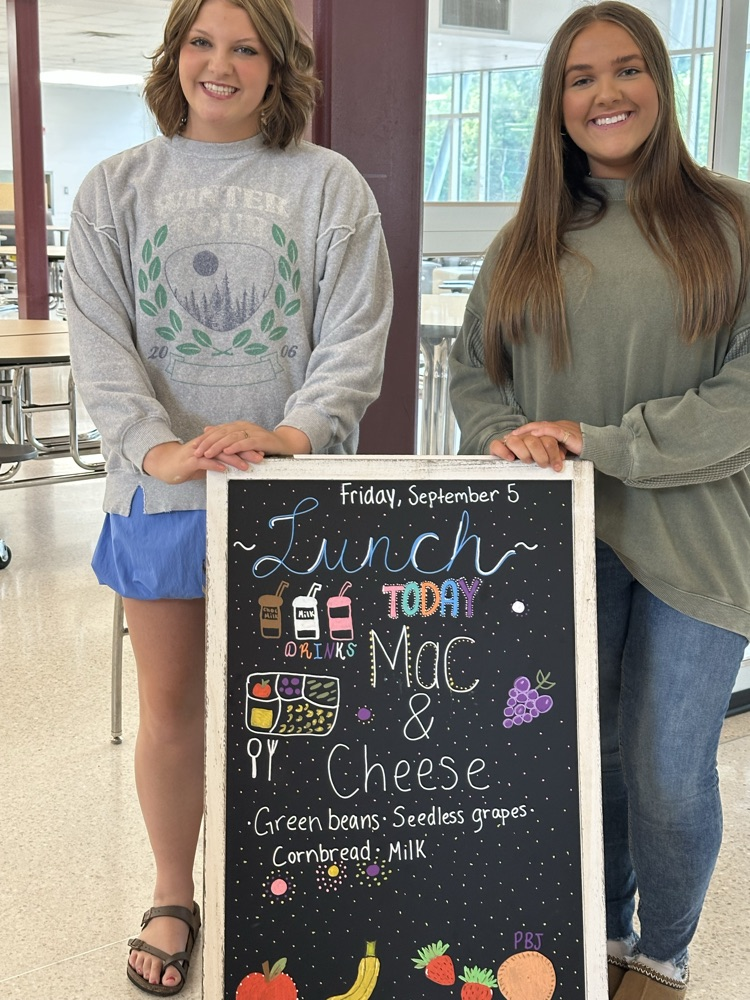 WINTER
2006
Friday, September 5
~Lunch~
TODAY
Choc Milk
Milk
DRINKS
Mac
&
Cheese
·Green beans· Seedless grapes·
Cornbread · Milk
PBJ